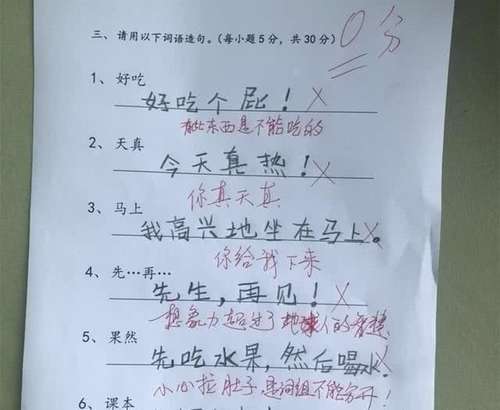 三、请用以下词语造句。(每小题5分,共30分) 0分
1、好吃
好吃个屁!
有些东西是不能吃的
2、天真
今天真热!
你真天真
3、马上
我高兴地坐在马上。
你给我下来
4、先……再……
先生,再见!
想象力超过了地球人的智慧
5、果然
先吃水果,然后喝水。
小心拉肚子 是词组不能分开!
6、课本